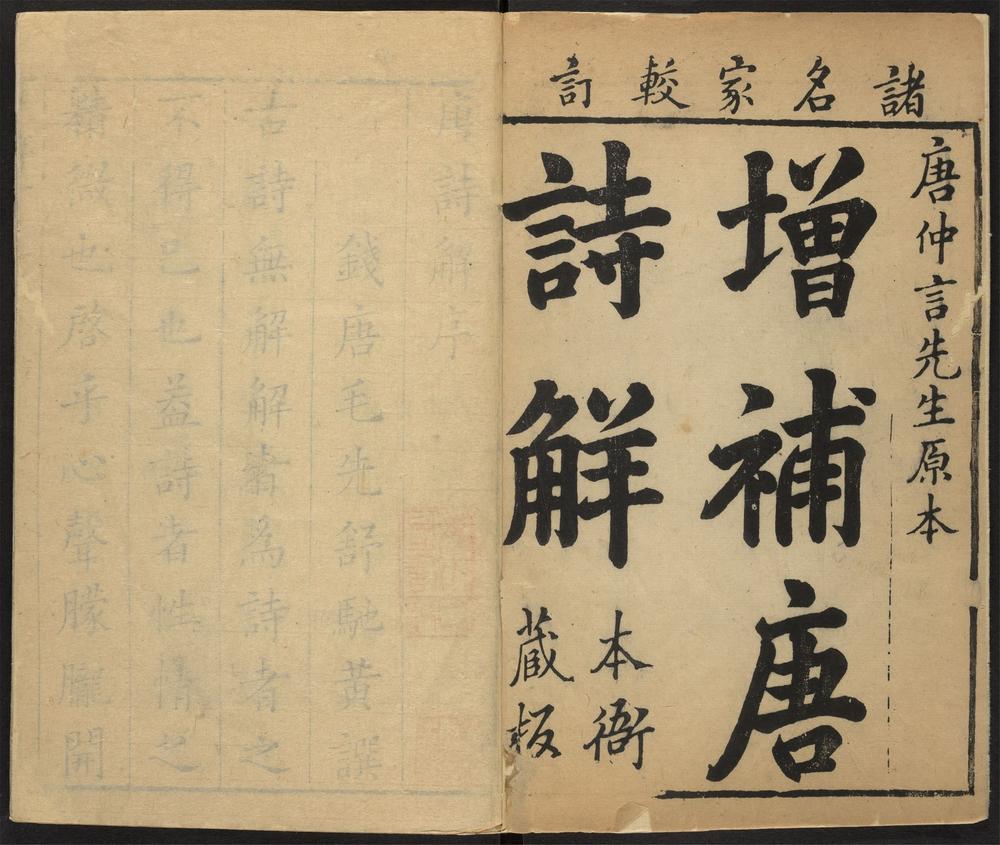 諸名家較訂
唐仲言先生原本
增補唐
詩解
本衙
蔵板
唐詩解序
錢唐毛先舒馳黄譔
古詩無解解為詩者之
不得已也益詩者性情之
微也啓乎心聲朦朧開